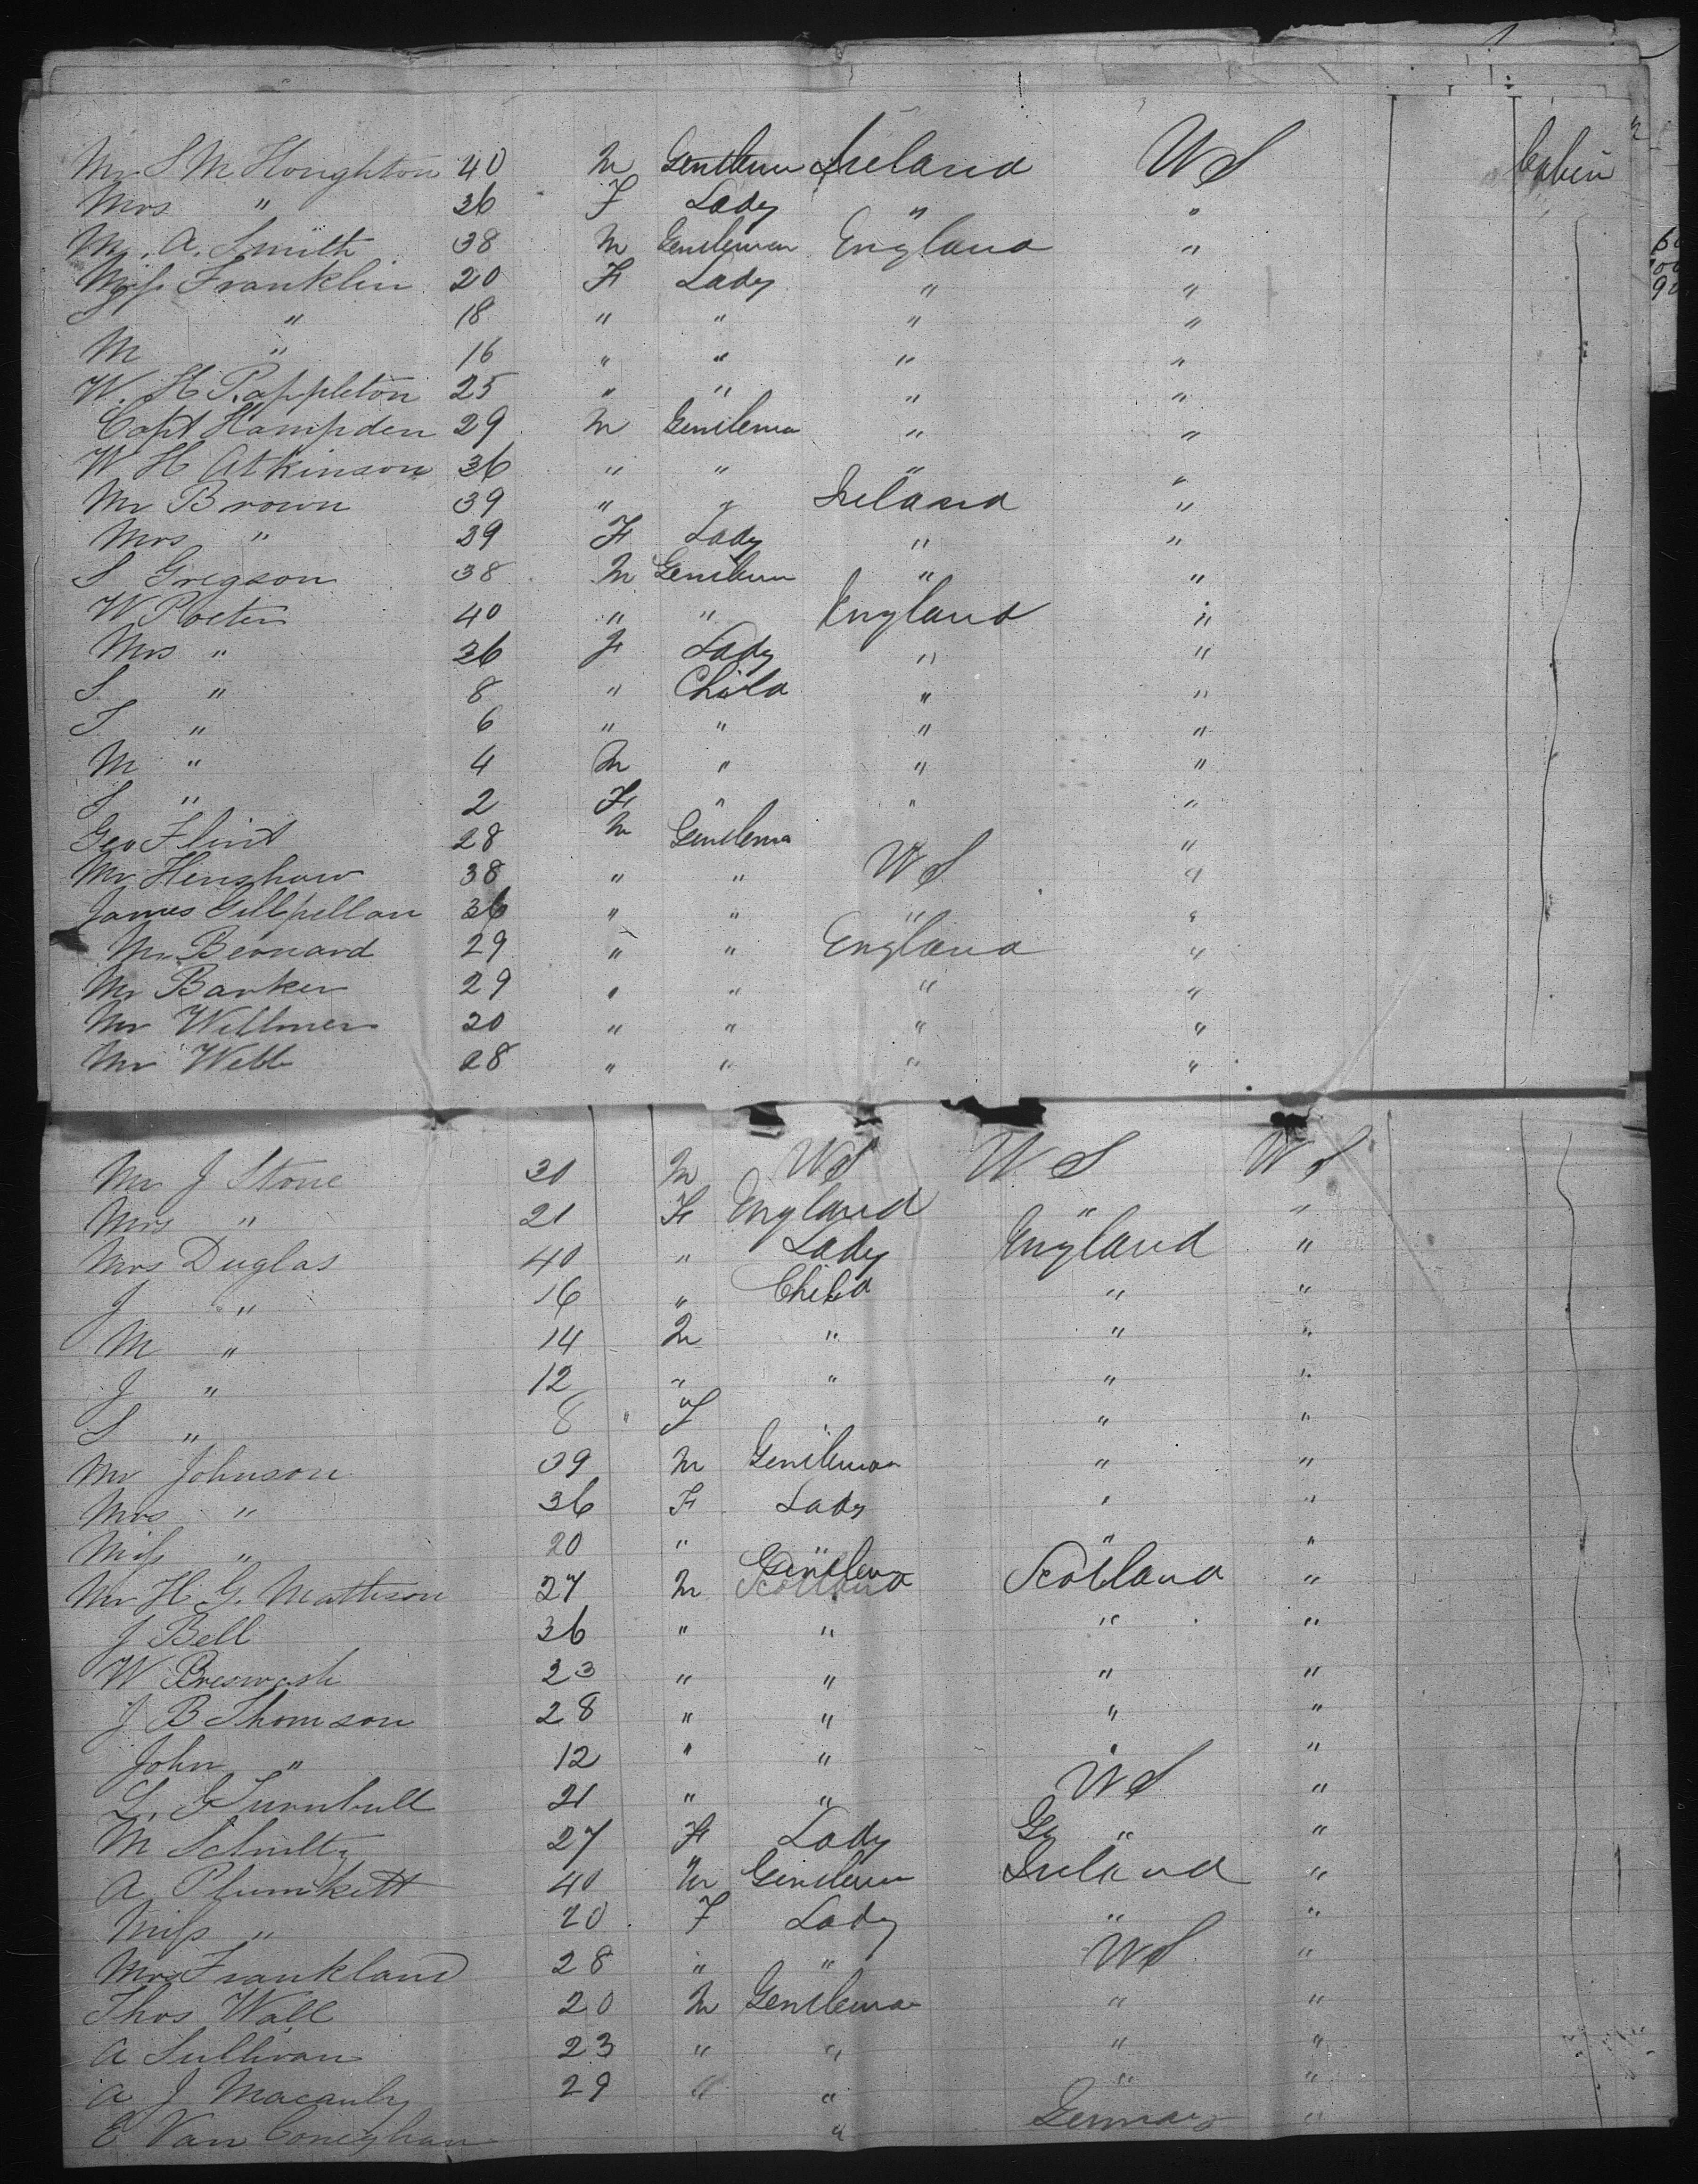 Mr S M Houghton 40 M Gentleman Ireland US Cabin
Mrs " 36 F Lady " "
Mr. A. Smith 38 M Gentleman England "
Miss Franklin 20 F Lady " "
S " 18 " " " "
M " 16 " " " "
W. H. Pappleton 25 " " " "
Capt Hampden 29 M Gentleman " "
W H Atkinson 36 " " " "
Mr Brown 39 " " Ireland "
Mrs " 39 F Lady " "
S Gregson 38 M Gentleman " "
W Porter 40 " " England "
Mrs " 36 F Lady " "
S " 8 " Child " "
S " 6 " " " "
M " 4 M " " "
S " 2 F " " "
Geo Flint 28 M Gentleman "
Mr Henshaw 38 " " US "
James 36 " " " "
Mr Bernard 29 " " England "
Mr Barker 29 " " " "
Mr Willmer 20 " " " "
Mr Webb 28 " " " "
Mr J Stone 30 M US US US
Mrs " 21 F England " "
Mrs Duglas 40 " Lady England "
J " 16 " Child " "
M " 14 M " " "
J " 12 " " " "
S " 8 " F " "
Mr Johnson 39 M Gentleman " "
Mrs " 36 F Lady " "
Miss " 20 " " " "
Mr H. G. Mattison 27 M Gentleman Scotland "
J Bell 36 " " " "
W 23 " " " "
J B Thomson 28 " " " "
John " 12 " " " "
L. G Turnbull 21 " " US "
M Schultz 27 F Lady Ge " "
A Plumkett 40 M Gentleman Ireland "
Miss " 20 F Lady " "
Mrs Frankland 28 " " US "
Thos Wall 20 M Gentleman " "
A Sullivan 23 " " " "
A J Macauly 29 " " " "
E Van " Germany "